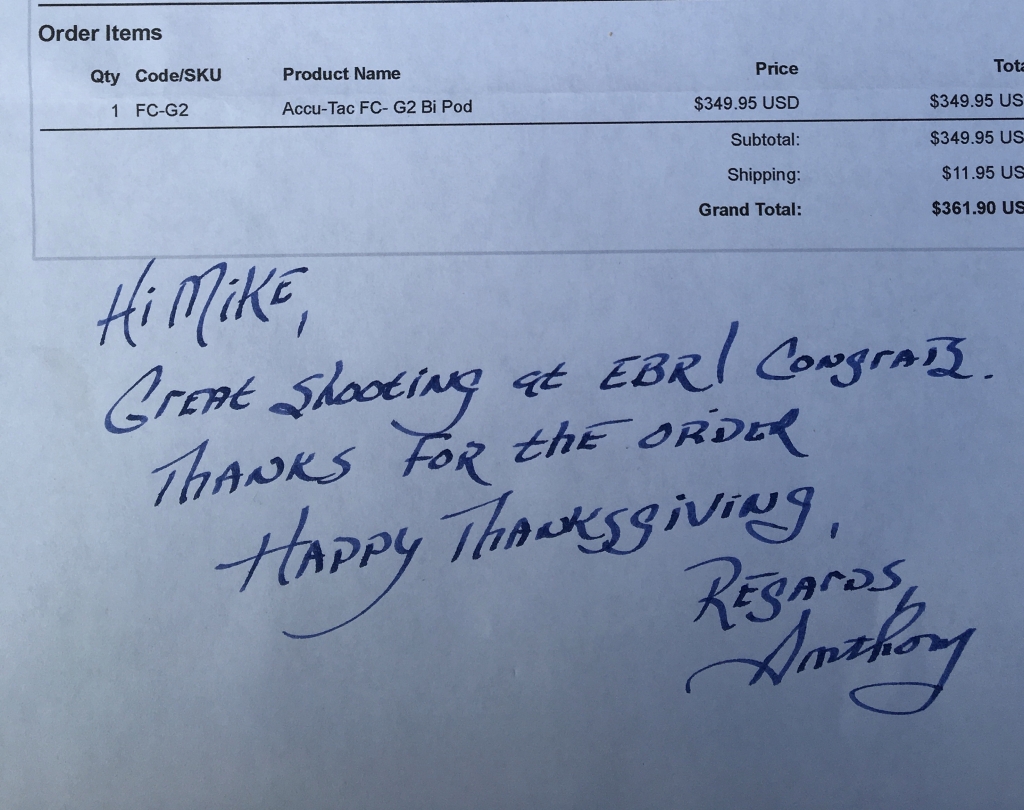 Order Items
Qty Code/SKU Product Name Price Tota
1 FC-G2 Accu-Tac FC- G2 Bi Pod $349.95 USD $349.95 US
Subtotal: $349.95 US
Shipping: $11.95 US
Grand Total: $361.90 US
Hi MiKE,
GrEAt ShootiNg at EBR! CoNgrATZ.
THANKS FoR thE ORDER
HAPPy THANKSgiViNg,
REgArDS,
Anthony